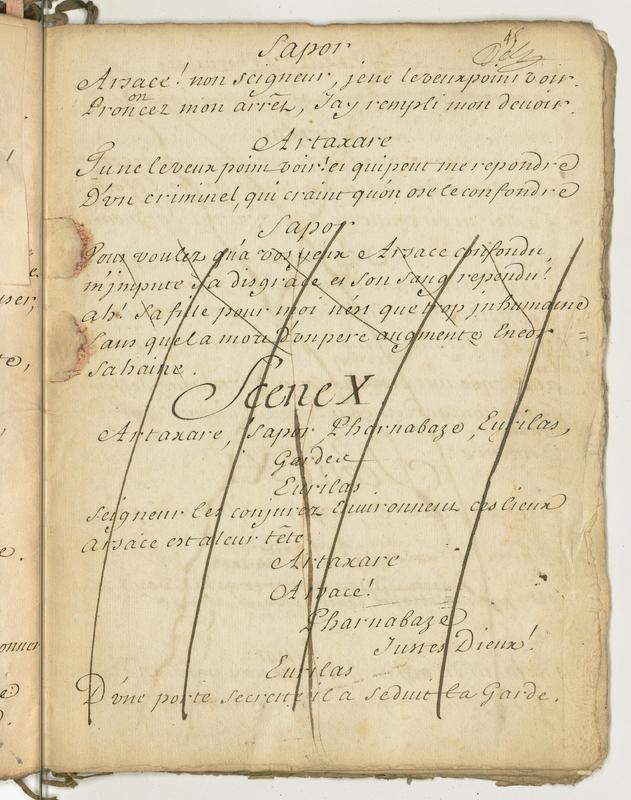 45
Sapor
Arsace! non Seigneur, je ne le veux point voir.
on
Proncez mon arrêt, J'ay rempli mon devoir.
Artaxare
Tu ne le veux point voir! et qui peut me repondre
D'vn criminel, qui craint qu'on ose le confondre
Sapor
Vous voulez qu'a vos yeux Arsace confondu,
m'jmpute sa disgrace et son sang rependu!
ah! Sa fille pour moi n'est que trop jnhumaine
Sans que la mort D'vn pere augmente Encor
Sa haine.
Scene X
Artaxare, Sapor, Pharnabaze, Eurilas,
Gardes
Eurilas.
Seigneur les conjurez Environnent ces lieux
Arsace est a leur tête
Artaxare
Arsace!
Pharnabaze
Justes Dieux!
Eurilas
D'vne porte secrette il a séduit la Garde.